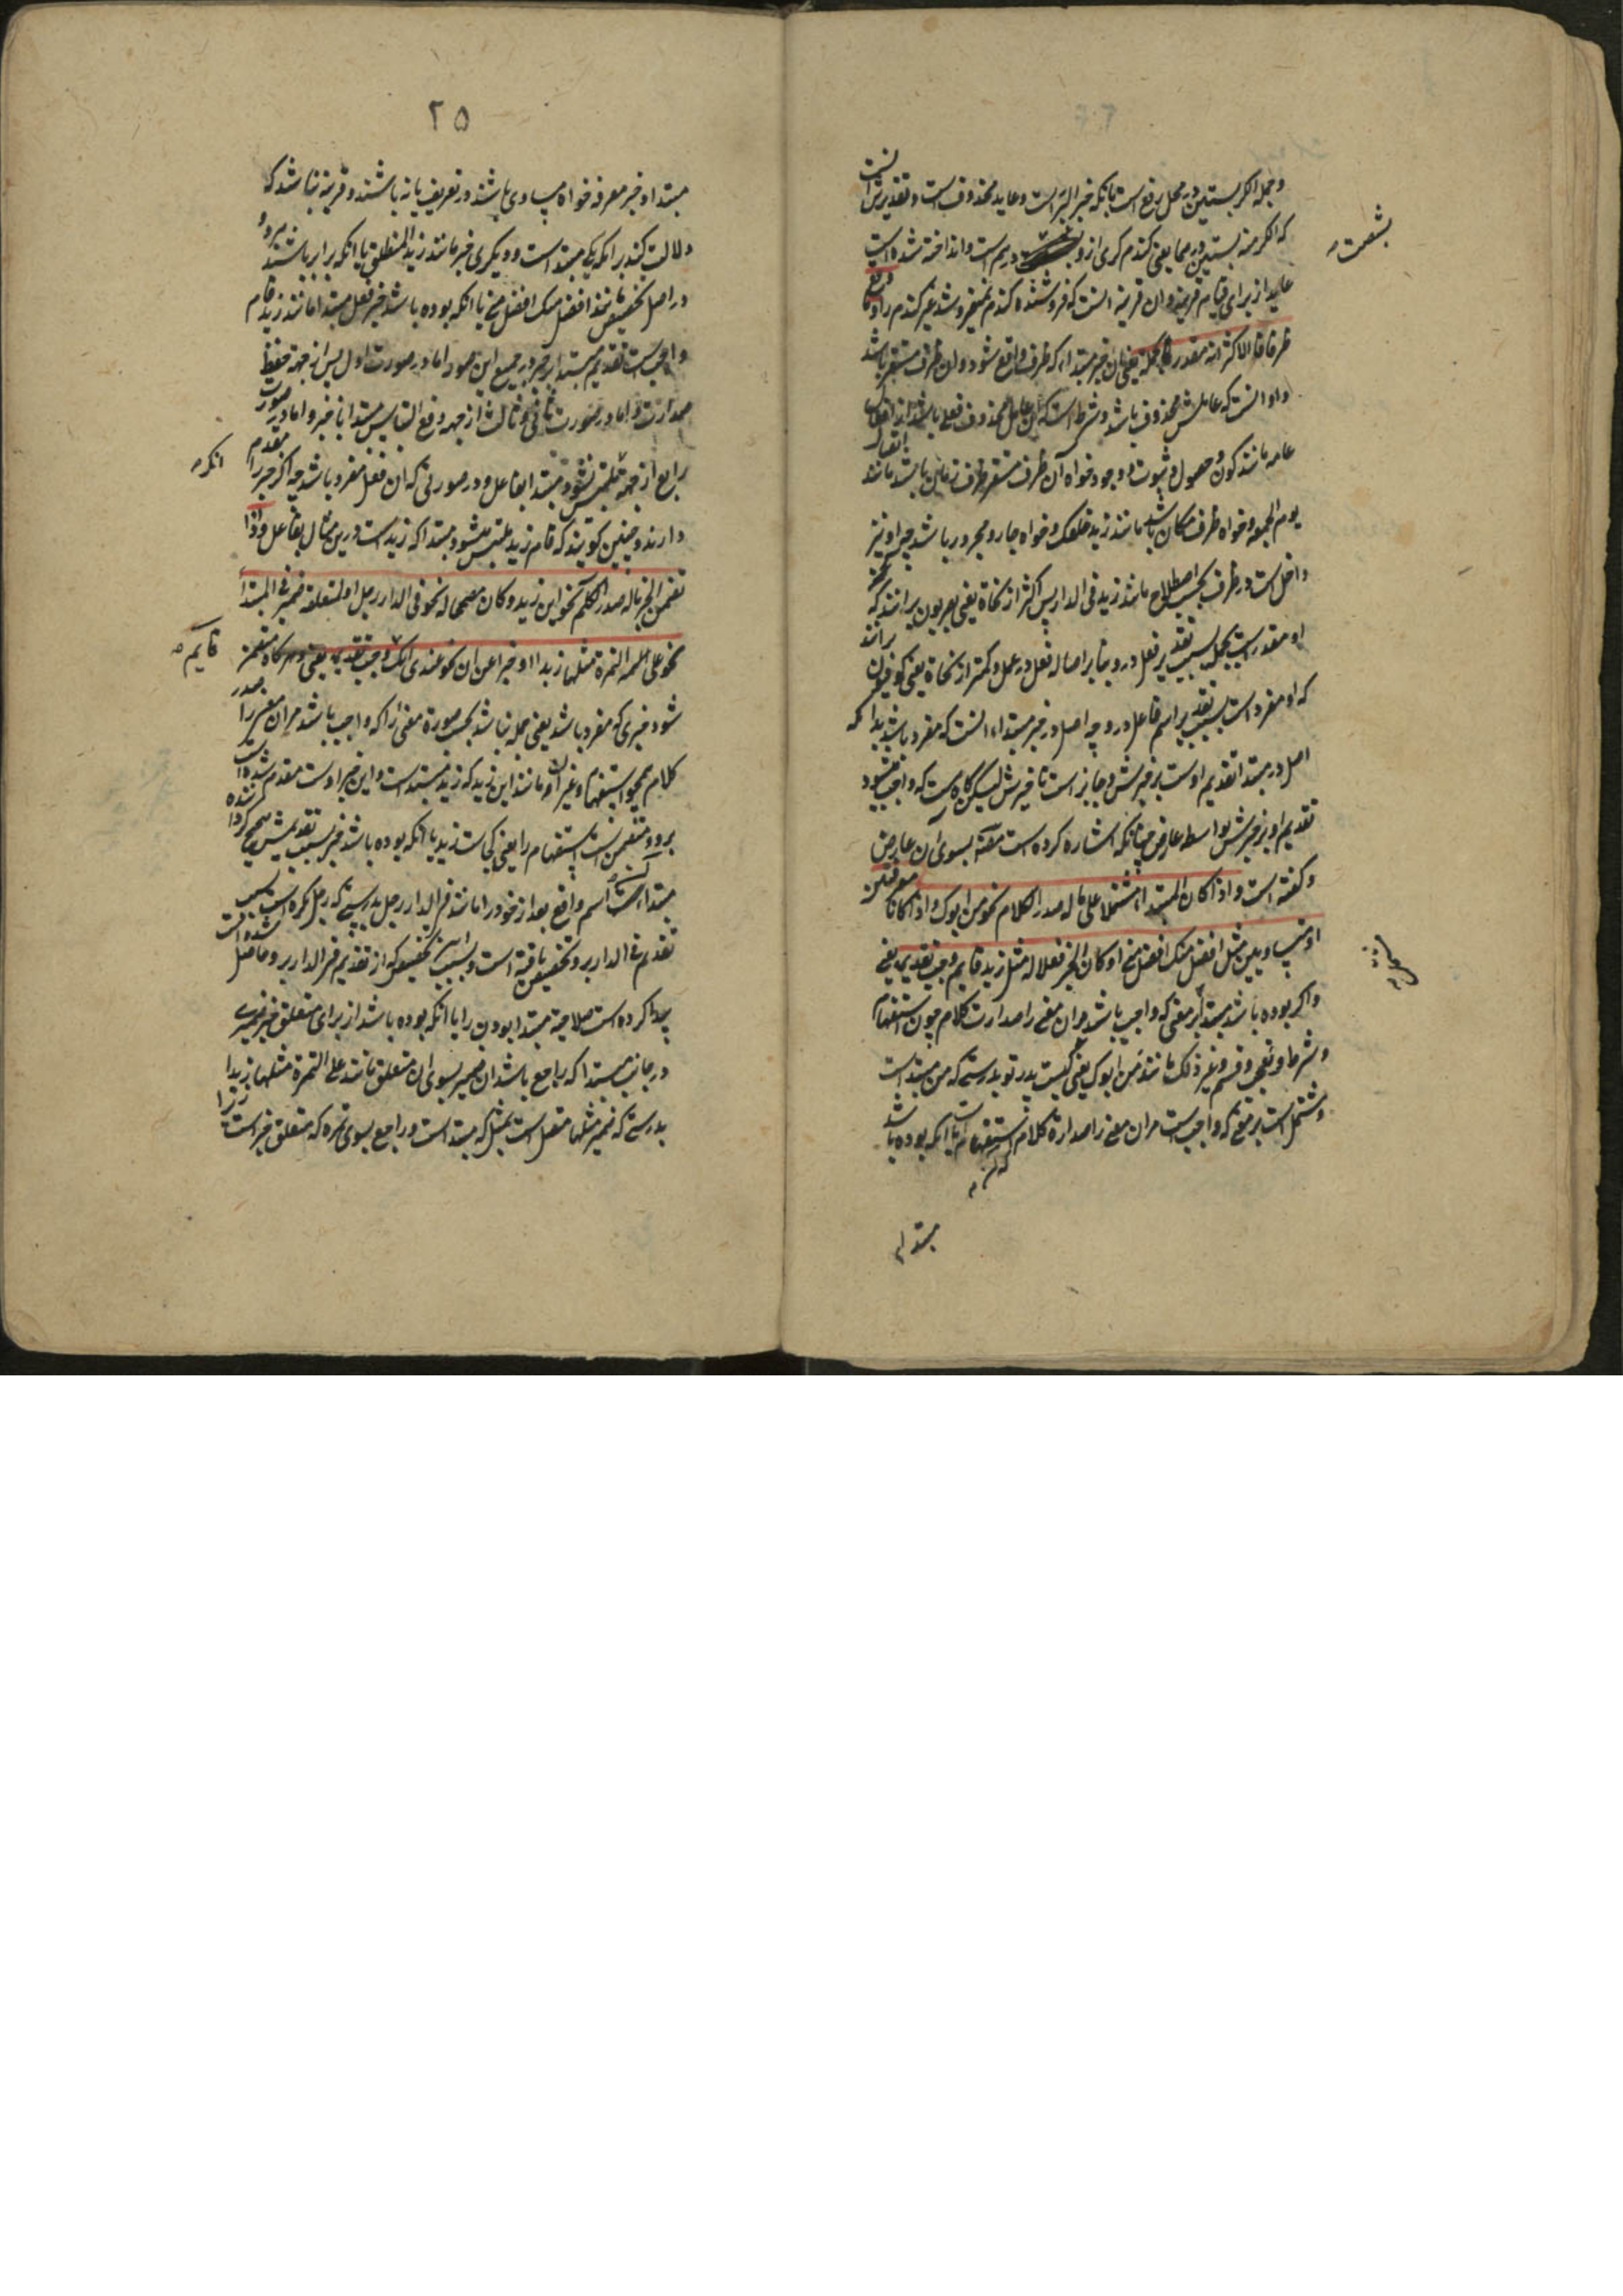 وجمله الکر بستین در محل رفع است بانکه خبر البر است وعاید محذوفست وتقدیرش انست
که الکر منه بستین درهما یعنی گندم کری ازو درم است وانداخته شده است
بشصت
عاید از برای قیام قرینه وان قرینه انست که فروشنده گندم نمیفروشد غیر گندم را وما وقع
ظرفا فالاکثر انه مقدر بجمله یعنی ان خبر مبتداء که ظرف واقع شود وان ظرف مستقر باشد
واو انست که عاملش محذوف باشد وشرط است که ان عامل محذوف فعلی باشد از افعال
عامه مانند کون وحصول وثبوت ووجود خواه آن ظرف مستقر ظرف زمان باشد مانند
یوم الجمعه وخواه ظرف مکان باشد مانند زید خلفک وخواه جار ومجرور باشد چه او نیز
داخل است در ظرف بحسب اصطلاح مانند زید فی الدار پس اکثر از نحاة یعنی بصریون برانند که
او مقدر است بجمله بسبب تقدیر فعل درو بنابر اصاله فعل در عمل وکمتر از نحاة یعنی کوفیون برانند
که او مفرد است بسبب تقدیر اسم فاعل درو چه اصل در خبر مبتداء انست که مفرد باشد بدانکه
اصل در مبتدا تقدیم اوست بر خبرش وجایز است تاخیرش لیکن کاه است که واجب میشود
تقدیم او بر خبرش بواسطه عارض چنانکه اشاره کرده است مصنف بسوی ان عارض
وکفته است واذا کان المبتداء مشتملا علی ماله صدر الکلام نحو من ابوک واذا کانا معرفتین
او متساویین مثل افضل منک افضل منی او کان الخبر فعلا له مثل زید قام وجب تقدیمه یعنی
واکر بوده باشد مبتدا بر معنی که واجب باشد مران معنی را صدارت کلام چون استفهام
مشتمل
وشرط وتعجب وقسم وغیر ذلک مانند من ابوک یعنی کیست پدر تو بدرستی که من مبتداست
ومشتمل است بر معنی که واجب است مران معنی را صدارة کلام که ان استفهام است یا انکه بوده باشد
مبتدا
۲۵
مبتدا وخبر معرفه خواه مساوی باشند در تعریف یا نه باشند وقرینه نباشد که
دلالت کند برانکه یکی مبتدا است ودیکری خبر مانند زید المنطلق یا انکه برابر باشند هر دو
در اصل تخصیص مانند افضل منک افضل منی یا انکه بوده باشد خبر فعل مبتدا مانند زید قام
واجب است تقدیم مبتدا بر خبر در جمیع این صور اما در صورت اول پس از جهة حفظ
صدارت واما در صورت ثانی وثالث از جهه رفع التباس مبتدا با خبر واما در صورت
رابع از جهة انکه ملتبس نشود مبتدا بفاعل ودر صورتی که ان فعل مفرد باشد چه اکر خبر را مقدم
دارند وچنین کویند که قام زید ملتبس میشود مبتدا که زید است درین مثال بفاعل واذا
تضمن الخبر ماله صدر الکلام نحو این زید وکان مصححا له نحو فی الدار رجل او لمتعلقه ضمیر فی المبتدأ
نحو علی التمرة مثلها زبدا او خبرا عن ان نحو عندی انک قایم وجب تقدیمه یعنی وهرکاه متضمن
شود خبری که مفرد باشد یعنی جمله نباشد بحسب صورة معنی را که واجب باشد مران معنی را صدر
کلام همچو استفهام وغیر ان مانند این زید که زید مبتداست واین خبر اوست مقدم شده است
برو ومتضمن است استفهام را یعنی کجاست زید یا انکه بوده باشد خبر بسبب تقدیمش صحیح کرداننده
مبتداء اسم واقع بعد از خود را مانند فی الدار رجل بدرستی که رجل نکره است بسبب
تقدیم فی الدار برو تخصیص یافته است وبسبب این تخصیص که از تقدیم فی الدار برو حاصل شده است
پیدا کرده است صلاحیة مبتدا بودن را یا انکه بوده باشد از برای متعلق خبر ضمیری
در جانب مبتدا که راجع باشد ان ضمیر بسوی ان متعلق مانند علی التمرة مثلها زبدا
بدرستی که ضمیر مثلها متصل است بمثل که مبتدا است وراجع بسوی تمره که متعلق خبر است زیرا